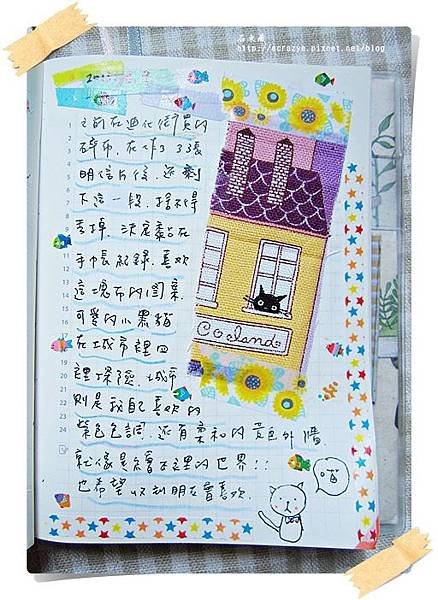 石來瘋
http://acrazye.pixnet.net/blog
之前在迪化街買的
碎布,在作了33張
明信片後,還剩
下這一段,捨不得
丟掉,決定黏在
手帳紀錄,喜歡
這塊布的圖案
可愛的小黑貓
在城市裡四
Coeland
裡探險,城市
則是我自己喜歡的
紫色色調,還有柔和的黃色外牆
就像是繪本裡的世界!!
也希望收到明友會喜歡
喵